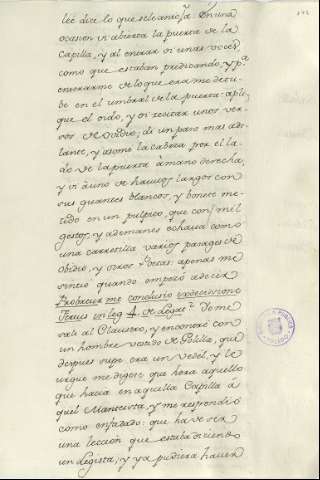 les dice lo que se le antoja. En una
ocasion vi abierta la puerta de la
Capilla, y al entrar oí unas voces,
como que estaban predicando, y p.ª
enterarme de lo que era me detu-
be en el umbral de la puerta apli-
que el oido, y oí recitar unos ver-
sos de Ovidio; di un paso mas ade-
lante, y asomé la cabeza por el la-
do de la puerta à mano derecha,
y vi à uno de havitos largos con
sus guantes blancos, y bonete me-
tido en un pulpito, que con mil
gestos, y ademanes echava como
una carretilla varios pasages de
Obidio, y otros Poetas: apenas me
sintio quando empezó a decir
Probatur me conclusio ex decissione
Textus in leg 4. de Legat.s Yo me
salí al Claustro, y encontré con
un hombre vestido de Golilla, que
despues supe era un Vedel, y le
rogue me digese que hera aquello
que hacia en aquella Capilla à
quel Manteista, y me respondió
como enfadado: que ha de ser
una leccion que estaba diciendo
un Legista; y ya pudiera haver